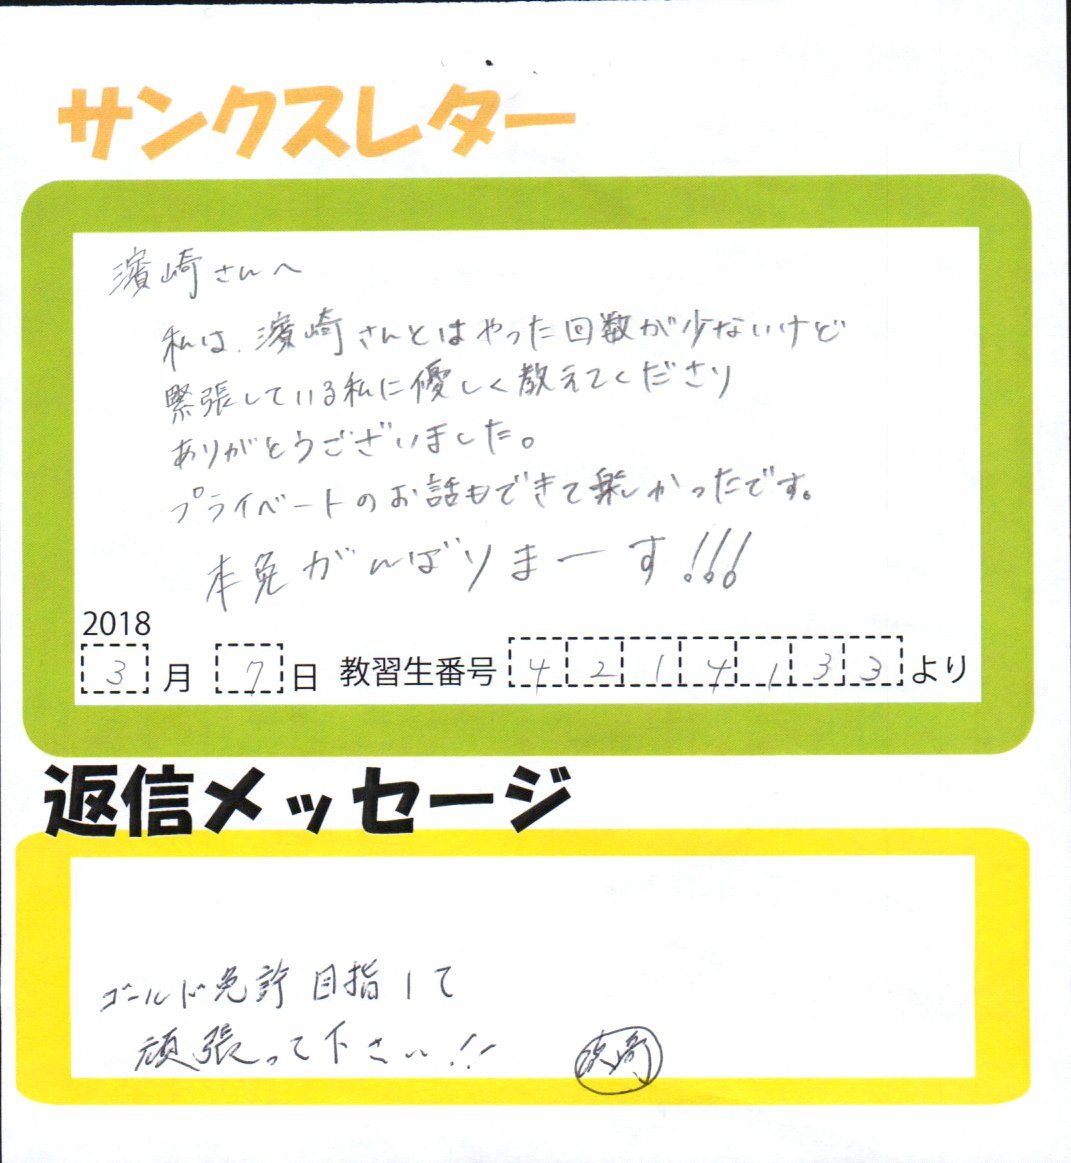 サンクスレター
濱崎さんへ
私は、濱崎さんとはやった回数が少ないけど
緊張している私に優しく教えてくださり
ありがとうございました。
プライベートのお話もできて楽しかったです。
本免がんばりまーす!!!
2018
3月 7日 教習生番号 4214133 より
返信メッセージ
ゴールド免許目指して
頑張って下さい!!
浜崎